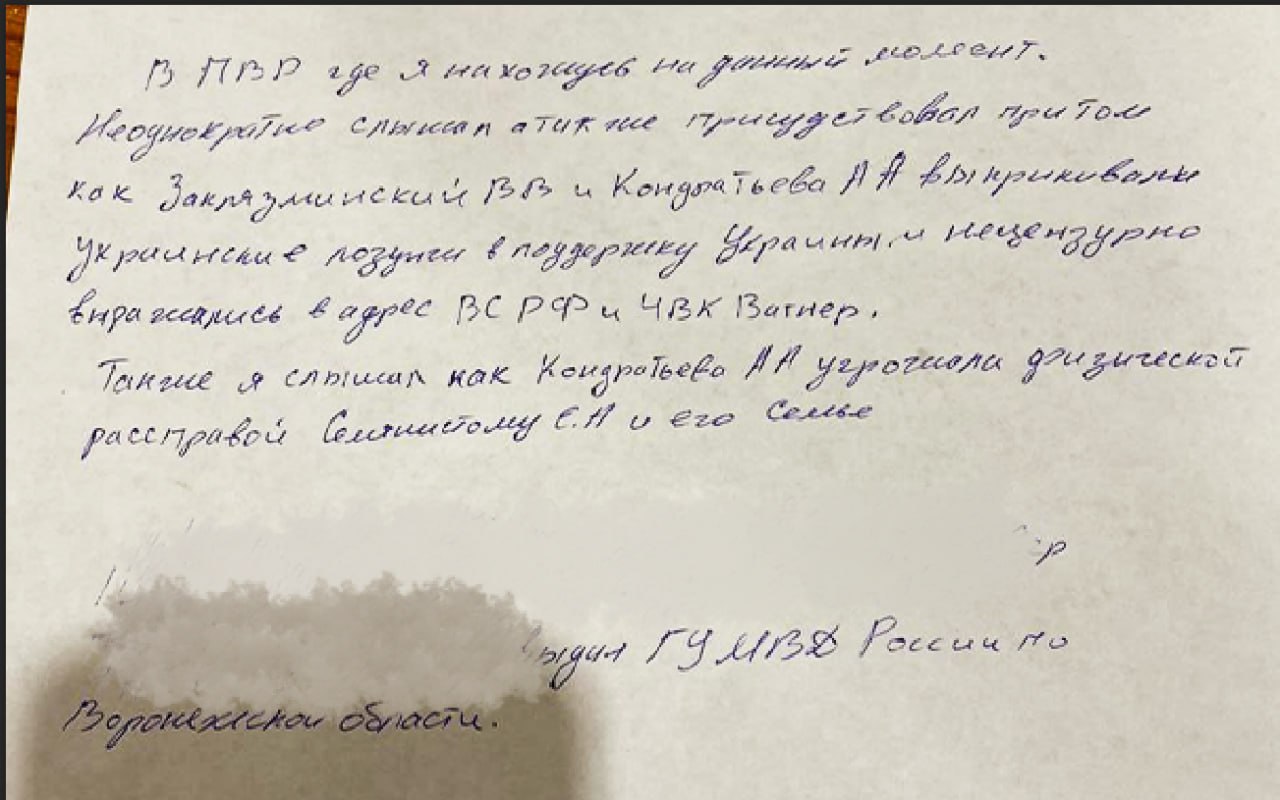 В ПВР где я нахожусь на данный момент.
Неоднократно слышал а так же присудствовал при том
как Заклязминский ВВ и Кондратьева АА выкрикивали
украинские лозунги в поддержку Украины, и нецензурно
выражались в адрес ВС РФ и ЧВК Вагнер.
Также я слышал как Кондратьева АА угрожала физической
рассправой Семянистому С.А и его семье
ГУ МВД России по
Воронежской области.